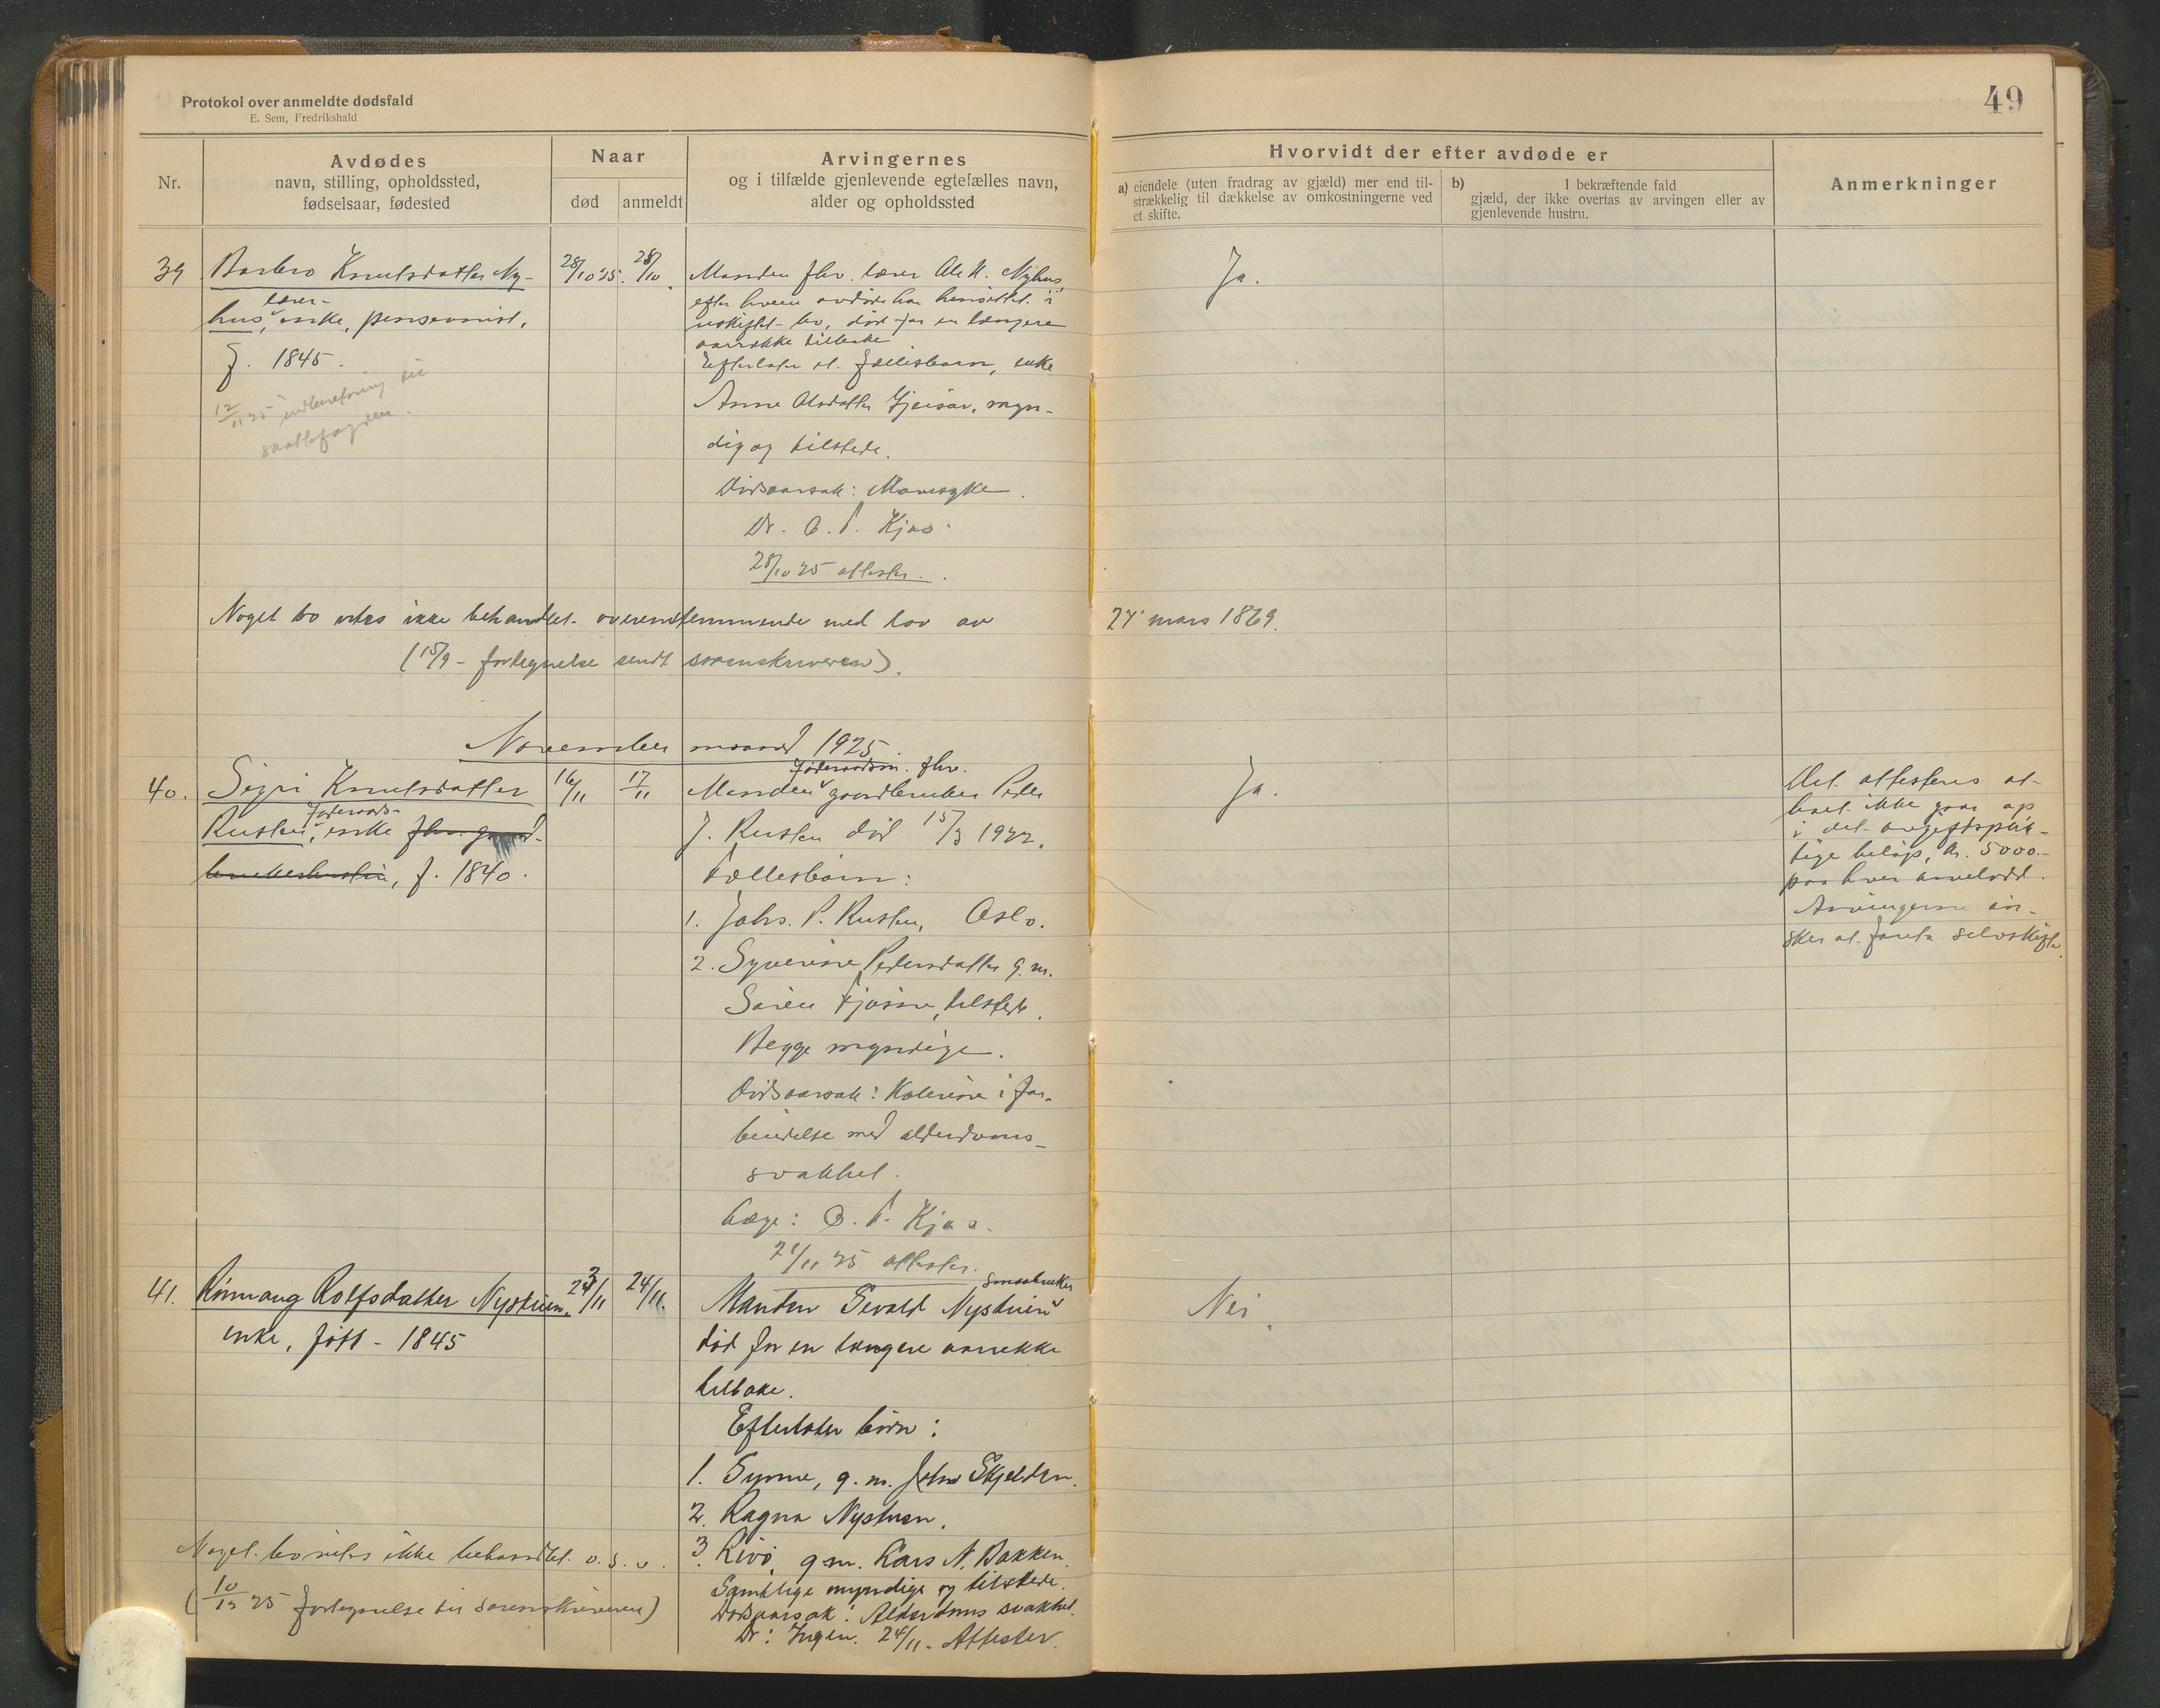 Protokol over anmeldte dødsfald
E. Sem, Fredrikshald
49
Nr.
Avdødes
navn, stilling, opholdssted,
fødselsaar, fødested
Naar
død
anmeldt
Arvingernes
og i tilfælde gjenlevende egtefælles navn,
alder og opholdssted
Hvorvidt der efter avdøde er
a) eiendele (uten fradrag av gjæld) mer end til-
strækkelig til dækkelse av omkostningerne ved
et skifte.
b) I bekræftende fald
gjæld, der ikke overtas av arvingen eller av
gjenlevende hustru.
Anmerkninger
39
Barbro Knutsdatter Ny-
lærer-
hus, enke, pensionist,
f. 1845.
12/11 25 indberetning til
skattefogden.
28/10 25.
28/10.
Manden fhv. lærer Ole N. Nyhus,
efter hvem avdøde har hensittet i
uskiftet bo, død for en længere
aarrække tilbake
Efterlater et fællesbarn, enke
Anne Olsdatter, myn-
dig og tilstede.
Dødsaarsak: Mavesyke.
Dr. O. P. Kjos
28/10 25 attester.
Ja.
Noget bo vites ikke behandlet overensstemmende med lov av 27 mars 1869.
(15/9 - fortegnelse sendt sorenskriveren).
November maaned 1925.
40.
Sigri Knutsdatter
føderaads-
Rusten, enke fhv. gaard-
brukerhustru, f. 1840.
16/11
17/11
føderaadsm. fhv.
Manden gaardbruker Peder
J. Rusten død 15/3 1922.
Fællesbarn:
1. Johs. P. Rusten, Oslo.
2. Syverine Pedersdatter g. m.
Søren, tilstede.
Begge myndige.
Dødsaarsak: Kolerine i for-
bindelse med alderdoms-
svakhet.
Læge: O. P. Kjos.
21/11 25 attester.
Ja.
Det attesteres at
boet ikke gaar op
i det avgiftsplik-
tige beløp, kr. 5000.-
paa hver arvelodd.
Arvingerne øn-
sker at foreta selvskifte.
41.
Rønnaug Rolfsdatter Nystuen.
enke, født - 1845
23/11
24/11.
smaabruker
Manden Sevald Nystuen
død for en længere aarrekke
tilbake.
Efterlater børn:
1. Synne, g. m. Johs Skjelden.
2. Ragna Nystuen.
3. Livø, g m. Lars N. Bakken.
Samtlige myndige og tilstede.
Dødsaarsak: Alderdoms svakhet.
Dr: Ingen. 24/11. Attester.
Nei.
Noget bo vites ikke behandlet o. s. v.
(10/12 25 fortegnelse til sorenskriveren)